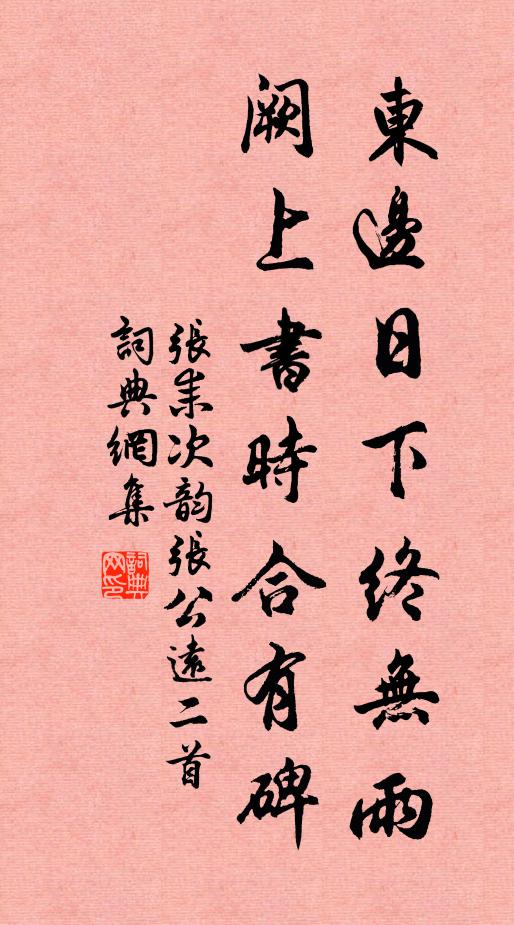 東邊日下終無雨
闕上書時合有碑
張耒次韵張公遠二首
詞典網集
詞典網印